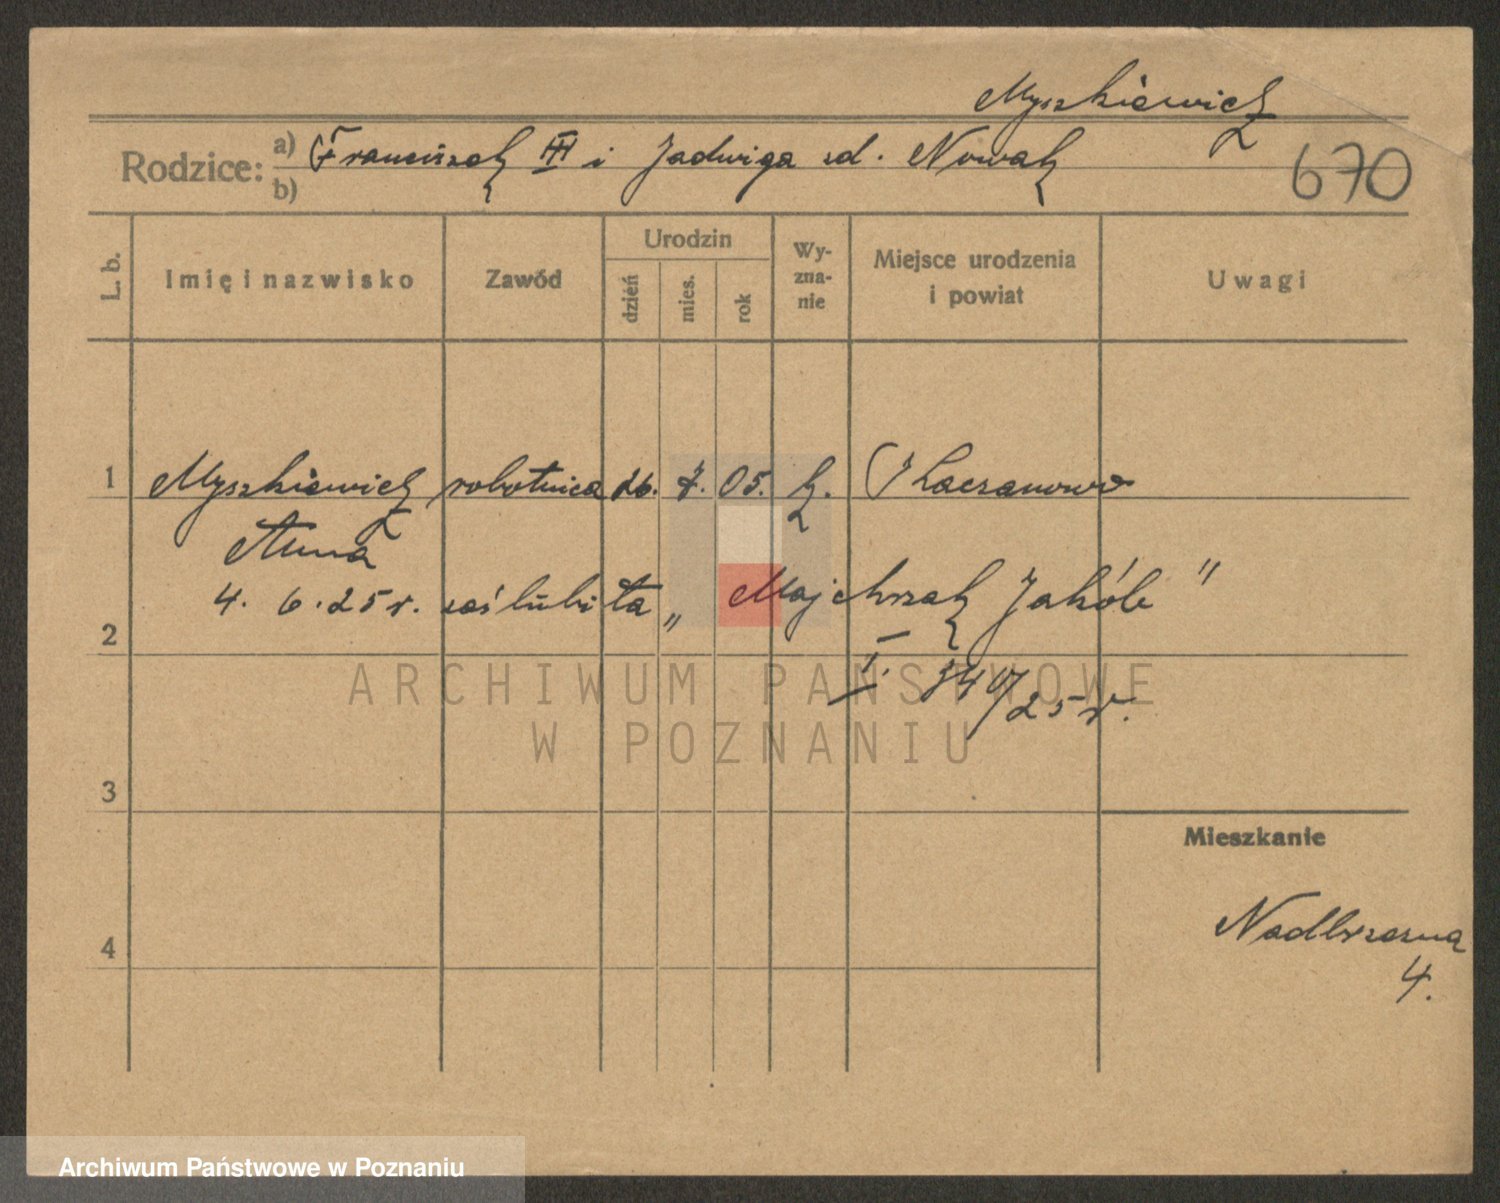 Myszkiewicz
Rodzice: a) Franciszek III i Jadwiga zd. Nowak
b)
670
L. b.
Imię i nazwisko
Zawód
Urodzin
dzień
mies.
rok
Wy-
zna-
nie
Miejsce urodzenia
i powiat
Uwagi
1 Myszkiewicz robotnica 26. 7. 05. k. Kaczanowo
Anna
4. 6. 25 r. zaślubiła „Majchrzak Jakób"
2
I. 340/25 r.
ARCHIWUM PAŃSTWOWE
W POZNANIU
3
Mieszkanie
Nadbrzeżna
4.
4
Archiwum Państwowe w Poznaniu